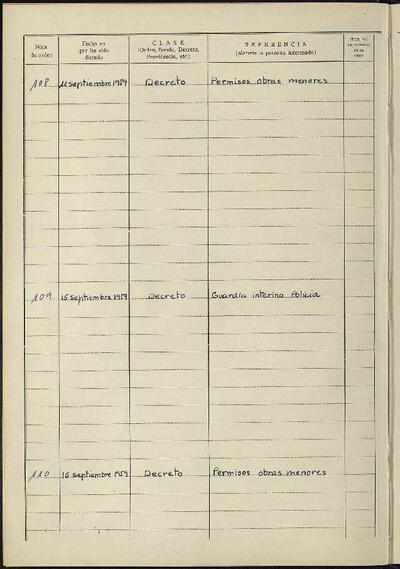 Núm. de orden
Fecha en que ha sido dictado
CLASE
(Orden, Bando, Decreto, Providencia, etc.)
REFERENCIA
(Materia o persona interesada)
108 11 septiembre 1989 Decreto Permisos obras menores
109 15 septiembre 1989 Decreto Guardia interino Policia
110 16 septiembre 1989 Decreto Permisos obras menores